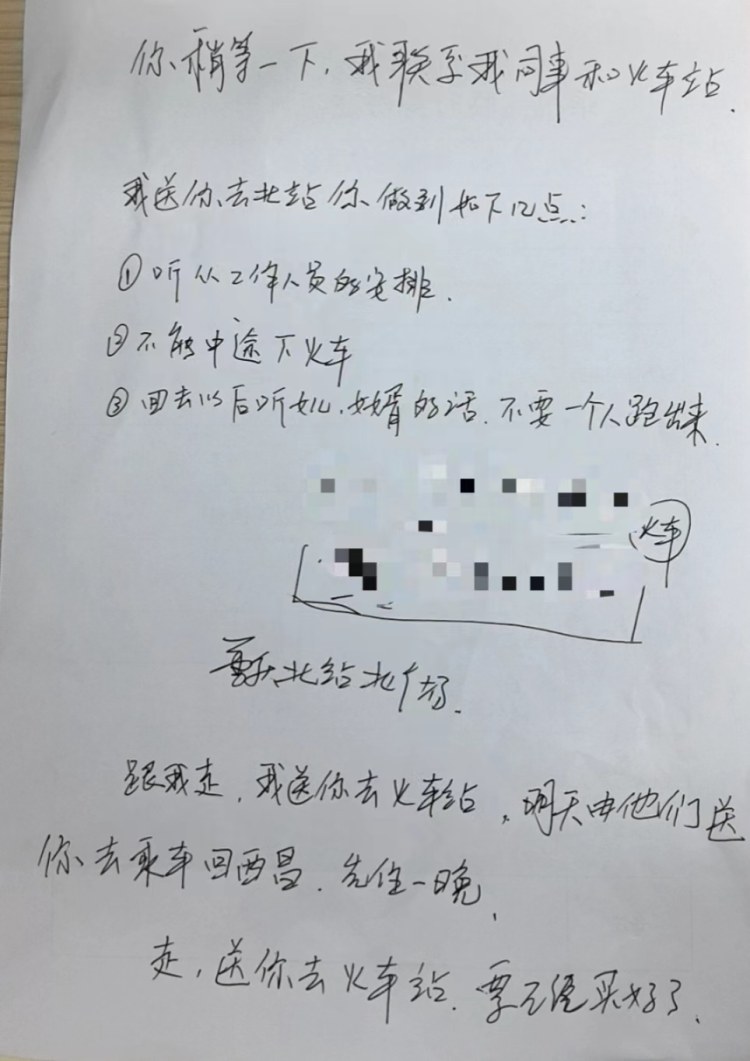 你稍等一下,我联系我同事和火车站.
我送你去北站你做到如下几点:
①听从工作人员的安排.
②不能中途下火车
③回去以后听女儿.女婿的话.不要一个人跑出来.
火车
重庆北站北广场.
跟我走,我送你去火车站,明天由他们送
你去乘车回西昌.先住一晚,
走,送你去火车站.票已经买好了.